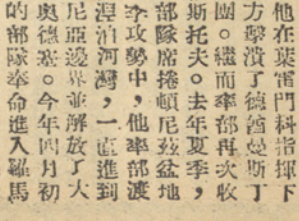 他在葉雷門科指揮下
方擊潰了德酋曼斯丁
團。繼而率部再次收
斯托夫。去年夏季，
部隊席捲頓尼茲盆地
季攻勢中，他率部渡
湼泊河灣，一直進到
尼亞邊界並解放了大
奧德塞。今年四月初
的部隊奉命進入羅馬